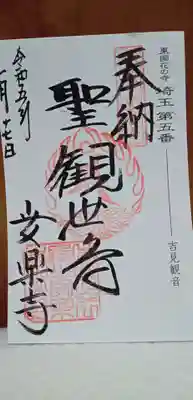 東国花の寺 埼玉 第五番
吉見観音
奉納
聖観世音
安楽寺
令和五年